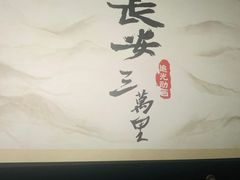 长安
三萬里
追光动画